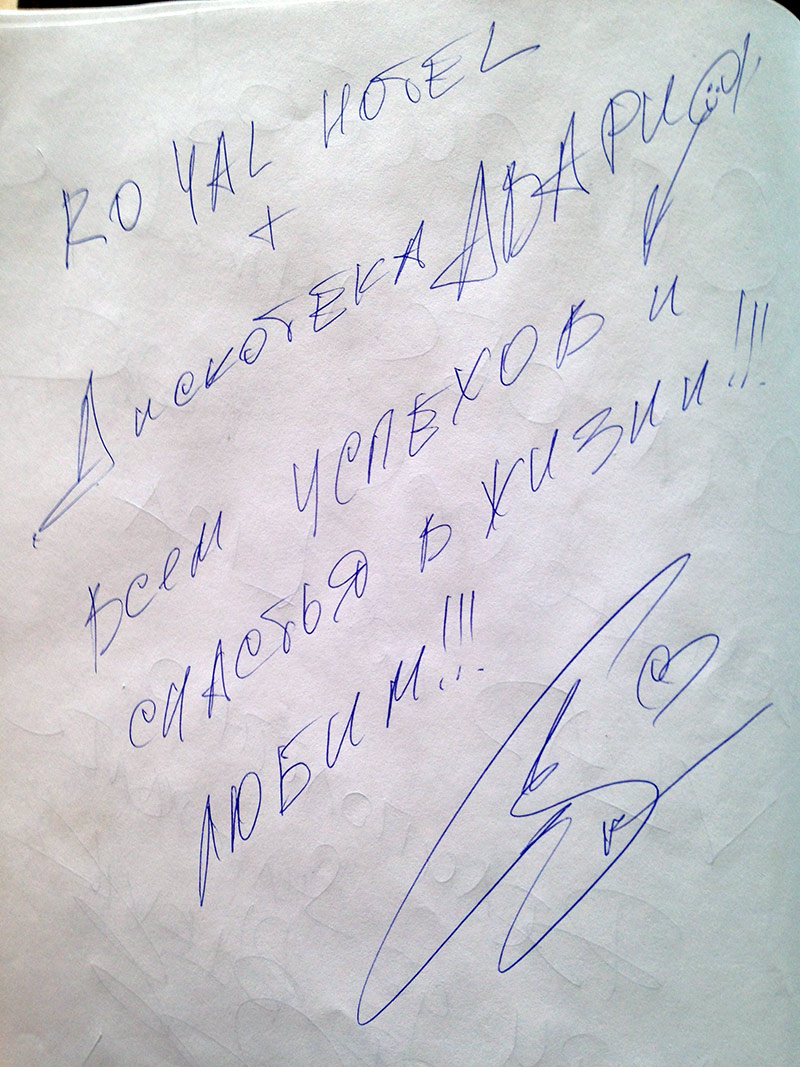 ROYAL HOTEL
+
Дискотека АВАРИЯ
Всем УСПЕХОВ и
СЧАСТЬЯ В ЖИЗНИ!!!
ЛЮБИМ!!!